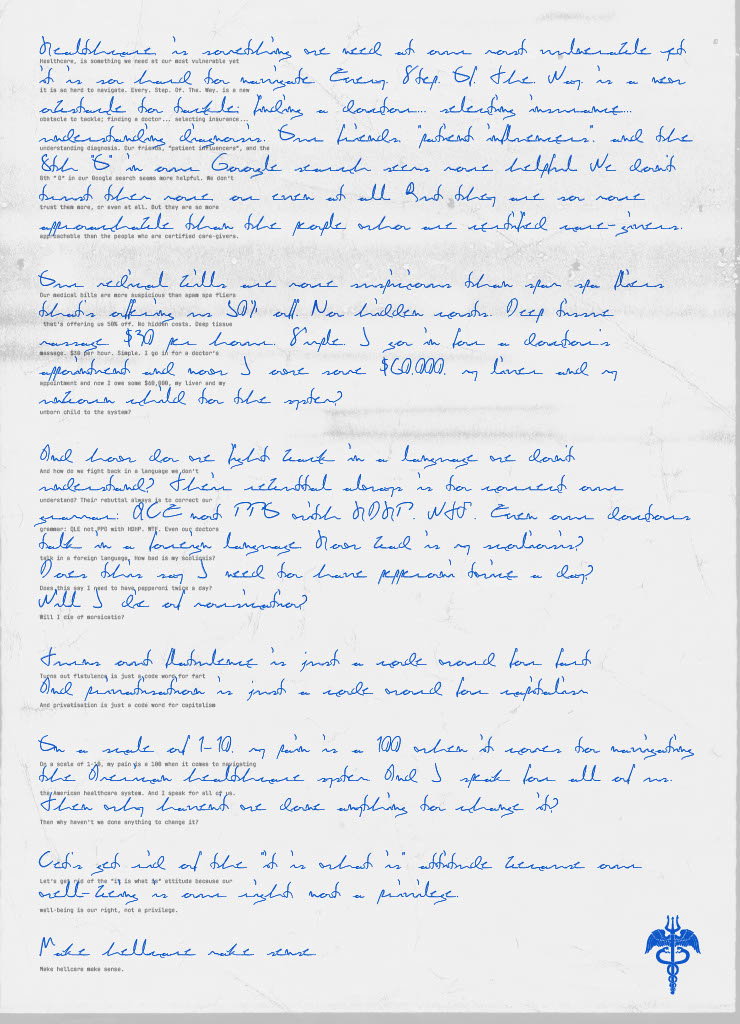 Healthcare is something we need at our most vulnerable yet
Healthcare, is something we need at our most vulnerable yet
it is so hard to navigate Every. Step. Of. The. Way. is a new
it is so hard to navigate. Every. Step. Of. The. Way. is a new
obstacle to tackle; finding a doctor... selecting insurance...
obstacle to tackle; finding a doctor... selecting insurance...
understanding diagnosis. Our friends, "patient influencers", and the
understanding diagnosis. Our friends, "patient influencers", and the
8th "O" in our Google search seems more helpful We don't
8th "O" in our Google search seems more helpful. We don't
trust them more, or even at all But they are so more
trust them more, or even at all. But they are so more
approachable than the people who are certified care-givers.
approachable than the people who are certified care-givers.
Our medical bills are more suspicious than spam spa fliers
Our medical bills are more suspicious than spam spa fliers
that's offering us 50% off. No hidden costs. Deep tissue
that's offering us 50% off. No hidden costs. Deep tissue
massage. $30 per hour. Simple. I go in for a doctor's
massage. $30 per hour. Simple. I go in for a doctor's
appointment and now I owe some $60,000, my liver and my
appointment and now I owe some $60,000, my liver and my
unborn child to the system?
unborn child to the system?
And how do we fight back in a language we don't
And how do we fight back in a language we don't
understand? Their rebuttal always is to correct our
understand? Their rebuttal always is to correct our
grammar: QLE not PPO with HDHP. WTF. Even our doctors
grammar: QLE not PPO with HDHP. WTF. Even our doctors
talk in a foreign language How bad is my scoliosis?
talk in a foreign language. How bad is my scoliosis?
Does this say I need to have pepperoni twice a day?
Does this say I need to have pepperoni twice a day?
Will I die of morsicatio?
Will I die of morsicatio?
Turns out flatulence is just a code word for fart
Turns out flatulence is just a code word for fart
And privatisation is just a code word for capitalism
And privatisation is just a code word for capitalism
On a scale of 1-10, my pain is a 100 when it comes to navigating
On a scale of 1-10, my pain is a 100 when it comes to navigating
the American healthcare system And I speak for all of us.
the American healthcare system. And I speak for all of us.
Then why haven't we done anything to change it?
Then why haven't we done anything to change it?
Let's get rid of the "it is what is" attitude because our
Let's get rid of the "it is what is" attitude because our
well-being is our right not a privilege.
well-being is our right, not a privilege.
Make hellcare make sense.
Make hellcare make sense.